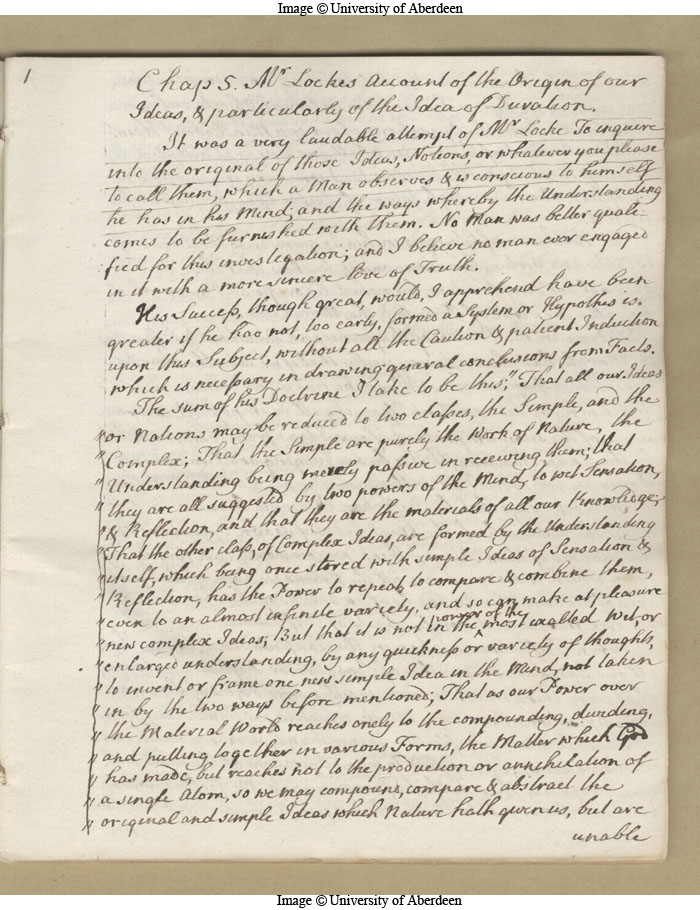 Image © University of Aberdeen
1
Chap 5. Mr Lockes Account of the Origin of our
Ideas, & particularly of the Idea of Duration.
It was a very laudable attempt of Mr Locke To inquire
into the original of those Ideas, Notions, or whatever you please
to call them, which a Man observes & is conscious to himself
he has in his Mind; and the ways whereby the Understanding
comes to be furnished with them. No Man was better quali-
fied for this investigation; and I believe no man ever engaged
in it with a more sincere love of Truth.
His Success, though great, would, I apprehend have been
greater if he had not, too early, formed a System or Hypothesis
upon this Subject, without all the Caution & patient Induction
which is necessary in drawing general conclusions from Facts.
The sum of his Doctrine I take to be this, "That all our Ideas
" or Notions may be reduced to two classes, the Simple, and the
" Complex; That the Simple are purely the Work of Nature, the
" Understanding being merely passive in receiving them; that
" they are all suggested by two powers of the Mind, to wit Sensation,
" & Reflection, and that they are the materials of all our Knowledge;
" That the other class, of Complex Ideas, are formed by the Understanding
" itself, which being once stored with simple Ideas of Sensation &
" Reflection, has the Power to repeat, to compare & combine them,
" even to an almost infinite variety, and so can make at pleasure
" new complex Ideas; But that it is not in the power of the most exalted Wit, or
" enlarged understanding, by any quickness or variety of thought,
" to invent or frame one new simple Idea in the Mind, not taken
" in by the two ways before mentioned; That as our Power over
" the Material World reaches onely to the compounding, dividing,
" and putting together in various Forms, the Matter which God
" has made, but reaches not to the production or annihilation of
" a single Atom, so we may compound, compare & abstract the
" original and simple Ideas which Nature hath given us, but are
unable
Image © University of Aberdeen